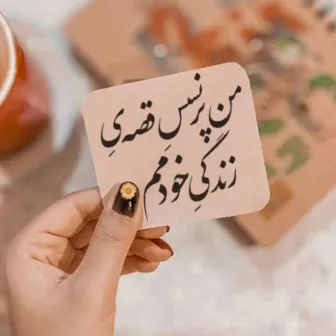 من پرنسسِ قصه‌یِ
زندگیِ خودمم